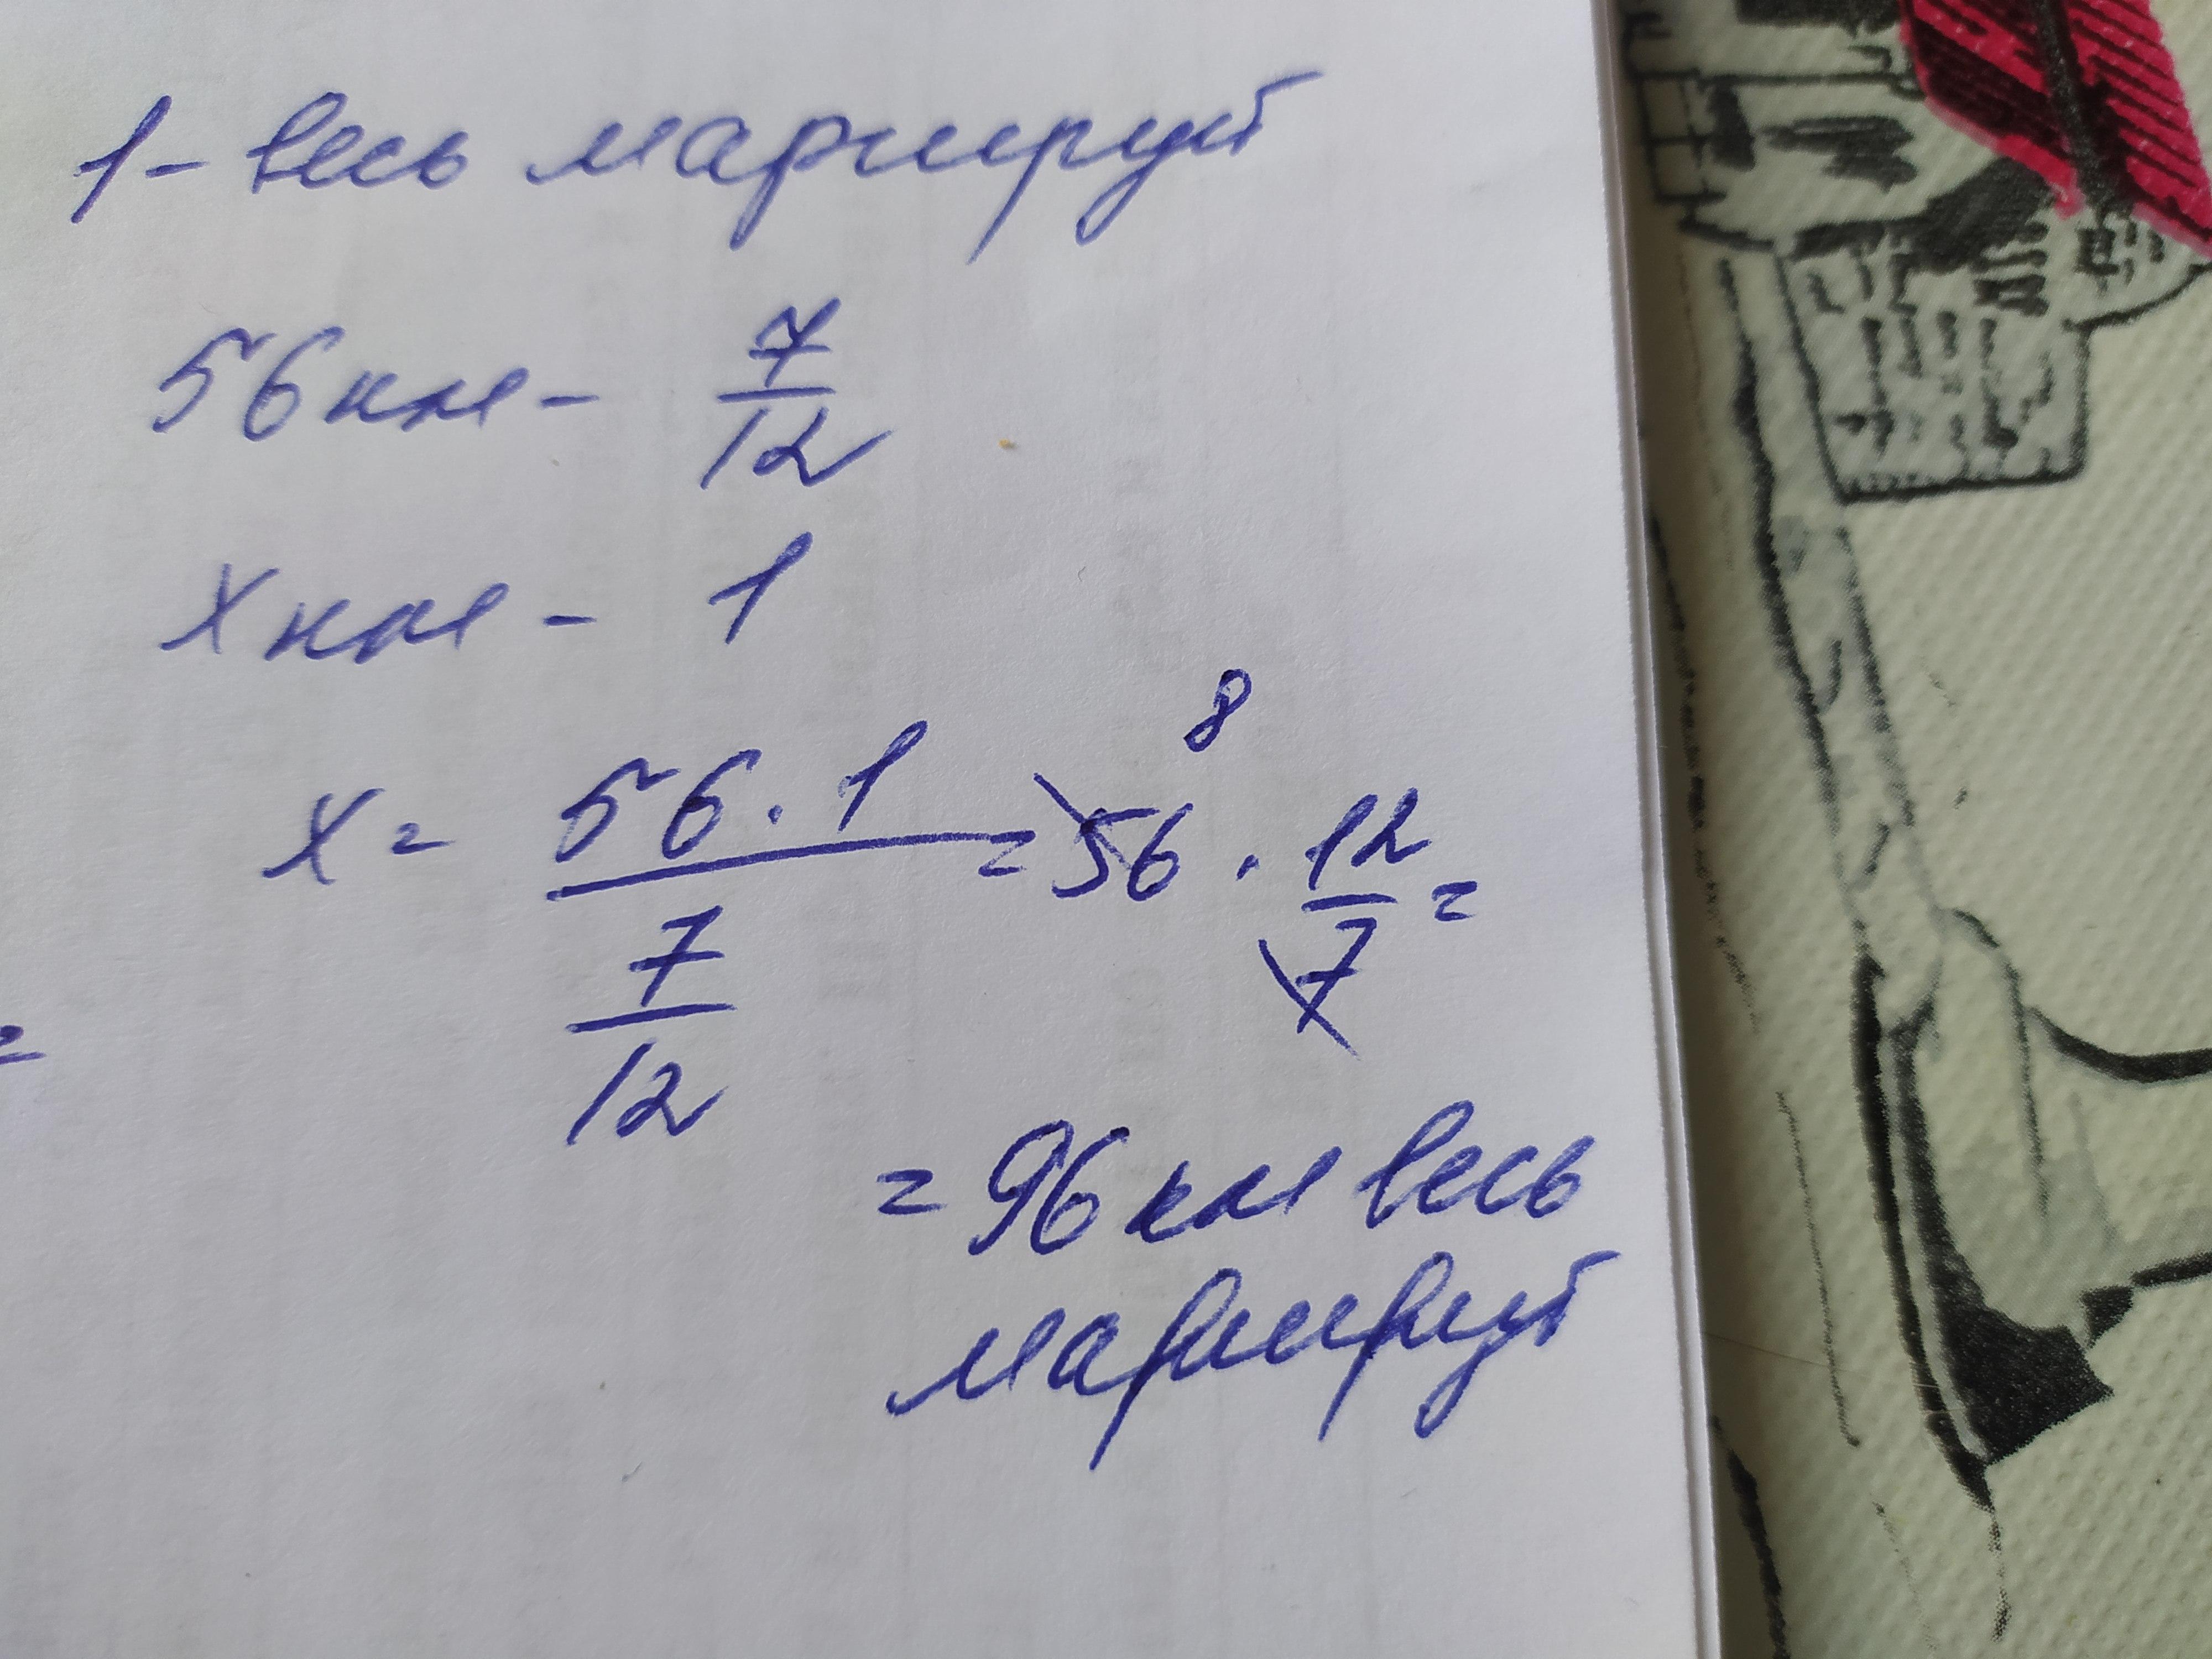 1 - весь маршрут
56 км - 7/12
x км - 1
8
x = 56 · 1 / 7/12 = 56 · 12/7 =
=
= 96 км весь
маршрут